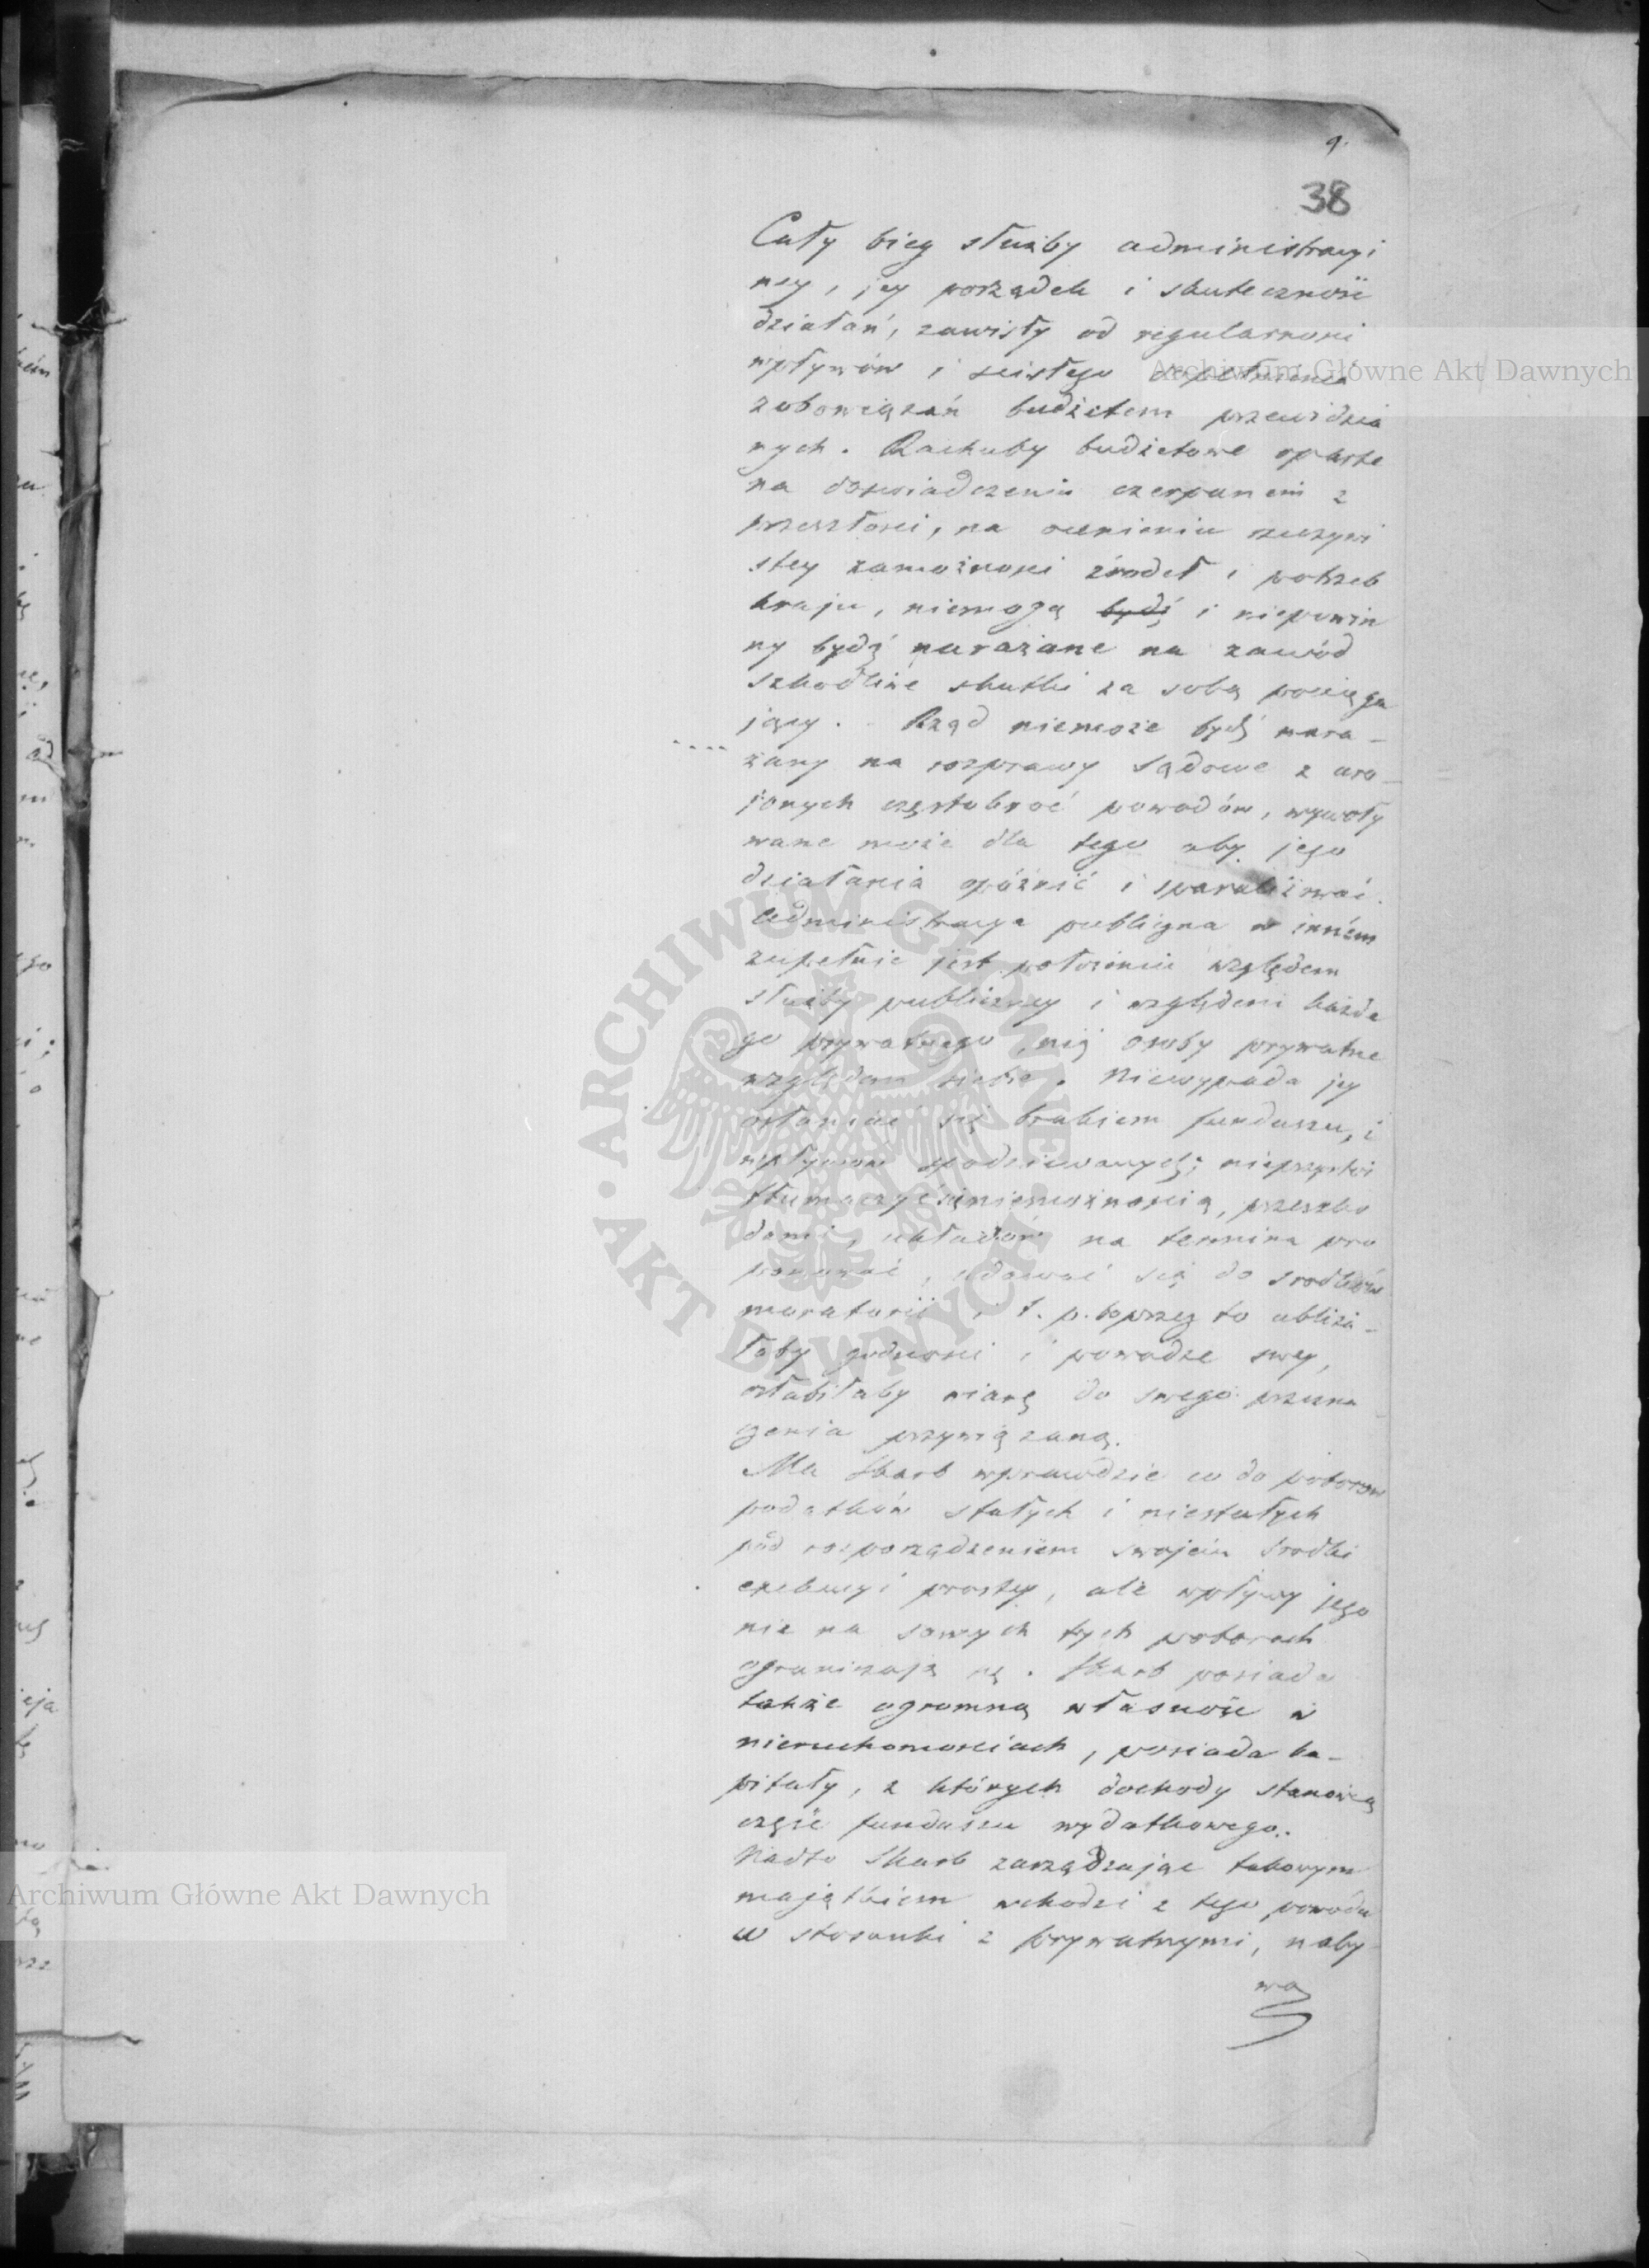 9.
38
Cały bieg służby administracyi
ney, jey porządek i skuteczność
działań, zawisły od regularności
wpływów i scisłego dopełnienia
zobowiązań budżetem przewidzia
nych. Rachuby budżetowe oparte
na doswiadczeniu czerpanem z
przeszłosci, na ocenieniu rzeczywi
stey zamożnosci źrodeł i potrzeb
kraju, niemogą bydź i niepowin
ny bydź narażane na zawód
szkodliwe skutki za sobą pociąga
jący. Rząd niemoże bydź nara-
żany na rozprawy Sądowe z uro-
jonych częstokroć powodów, wywoły
wane może dla tego aby jego
działania opóźnić i sparaliżować.
Administracya publiczna w inném
zupełnie jest położeniu względem
służby publiczney i względem każde
go prywatnego, niż osoby prywatne
względem siebie. Niewypada jey
osłaniać się brakiem funduszu, i
wpływów spodziewanych; nieprzystoi
tłumaczyć się niemożnoscią, przeszko
dami, układów na termina pro
ponować, udawać się do srodków
moratorii i t. p. bo przez to ubliża-
łaby godnosci i powadze swey,
osłabiłaby wiarę do swego przezna
czenia przywiązaną.
Ma Skarb wprawdzie co do poborów
podatków stałych i niestałych
pod rozporządzeniem swojém srodki
exekucyi prostey, ale wpływy jego
nie na samych tych poborach
ograniczają się. Skarb posiada
także ogromną własność w
nieruchomosciach, posiada ka-
pitały, z których dochody stanowią
część funduszu wydatkowego.
Nadto Skarb zarządzając takowym
majątkiem wchodzi z tego powodu
w stosunki z prywatnymi, naby
wa
Archiwum Główne Akt Dawnych
Archiwum Główne Akt Dawnych
ARCHIWUM GŁÓWNE • AKT DAWNYCH •